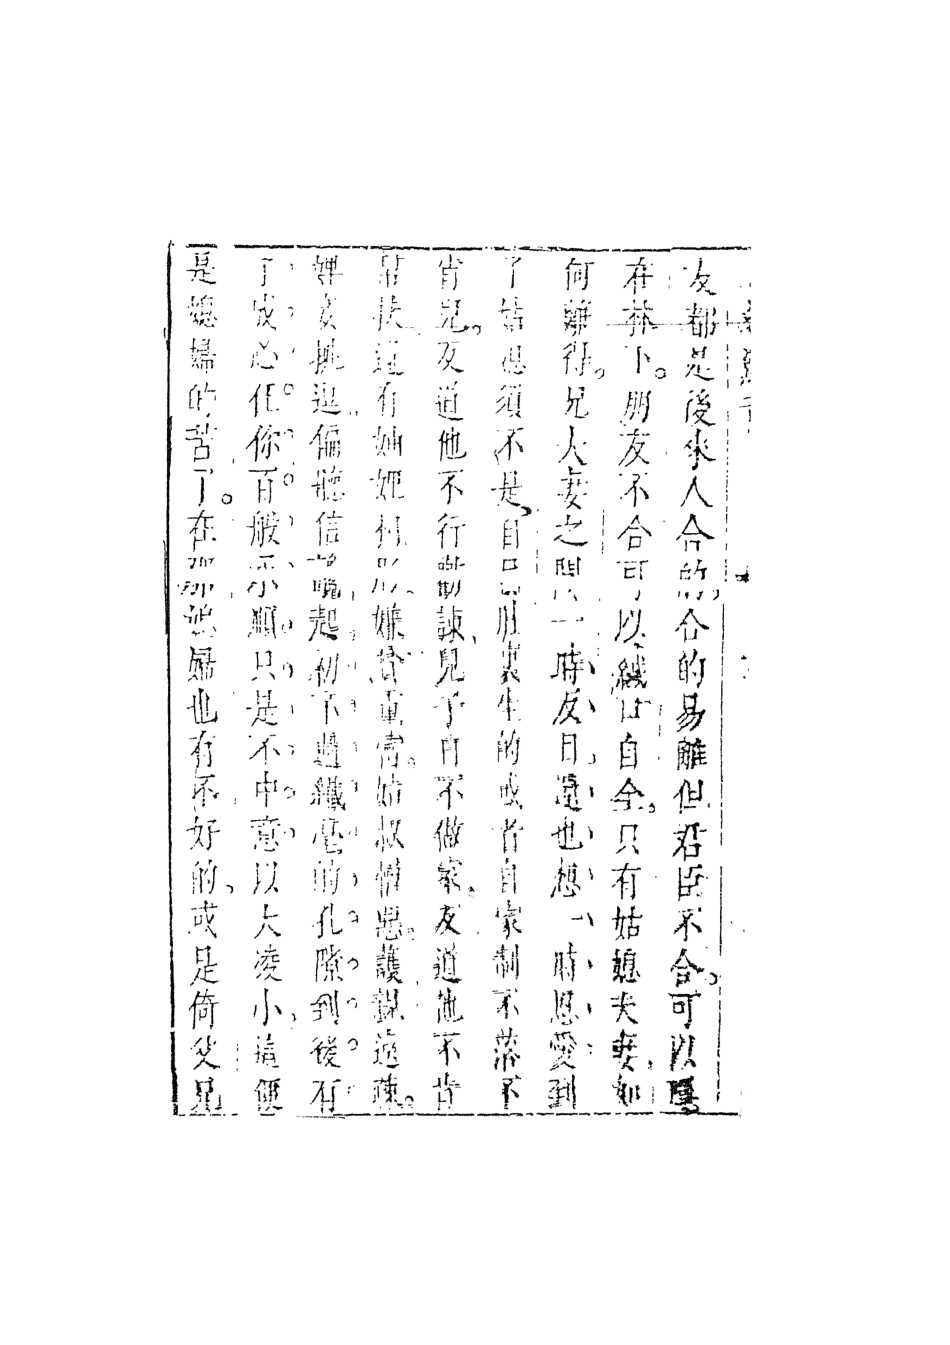 友都是後來人合的合的易離但君臣不合可以隱
在林下朋友不合可以緘口自全只有姑媳夫妻如
何離得況夫妻之間一時反目還也想一時恩愛到
了姑媳須不是自己肚裏生的或者自家制不落不
肖兒反道他不行勸諫兒子自不做家反道他不肯
幫扶還有妯娌相形嫌貧重富姑叔憎惡護親遠疎
婢妾挑逗偏聽信讒起初不過纖毫的孔隙到後有
了成心任你百般承順只是不中意以大凌小這便
是媳婦的苦了在那媳婦也有不好的或是倚父兄